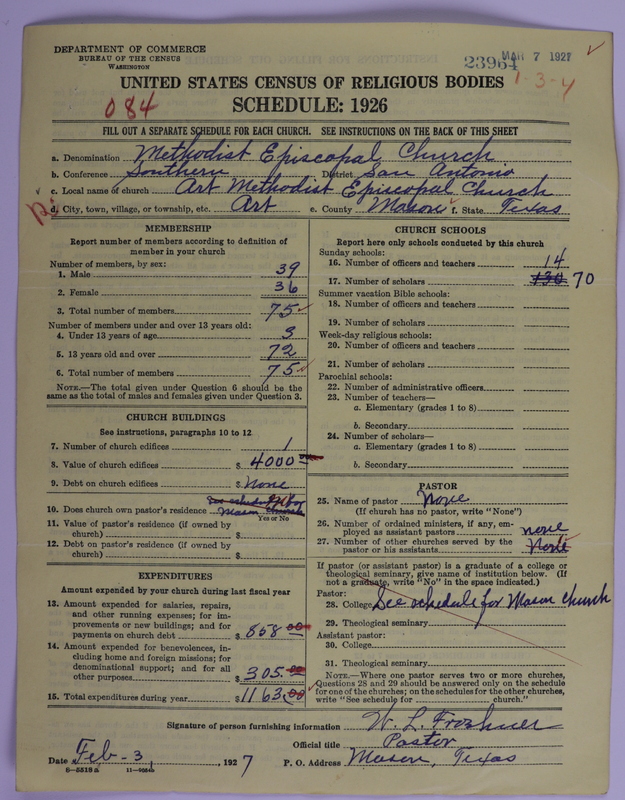 DEPARTMENT OF COMMERCE
BUREAU OF THE CENSUS
WASHINGTON
23964 MAR 7 1927
1-3-4
UNITED STATES CENSUS OF RELIGIOUS BODIES
084
SCHEDULE: 1926
FILL OUT A SEPARATE SCHEDULE FOR EACH CHURCH. SEE INSTRUCTIONS ON THE BACK OF THIS SHEET
a. Denomination Methodist Episcopal Church
b. Conference Southern District San Antonio
c. Local name of church Art Methodist Episcopal Church
d. City, town, village, or township, etc. Art e. County Mason f. State Texas
MEMBERSHIP
Report number of members according to definition of
member in your church
Number of members, by sex:
1. Male 39
2. Female 36
3. Total number of members 75
Number of members under and over 13 years old:
4. Under 13 years of age 3
5. 13 years old and over 72
6. Total number of members 75
NOTE.—The total given under Question 6 should be the
same as the total of males and females given under Question 3.
CHURCH BUILDINGS
See instructions, paragraphs 10 to 12
7. Number of church edifices 1
8. Value of church edifices $ 4000
9. Debt on church edifices $ None
10. Does church own pastor's residence See schedule for
Mason Church
Yes or No
11. Value of pastor's residence (if owned by
church) $
12. Debt on pastor's residence (if owned by
church) $
EXPENDITURES
Amount expended by your church during last fiscal year
13. Amount expended for salaries, repairs,
and other running expenses; for im-
provements or new buildings; and for
payments on church debt $ 858.00
14. Amount expended for benevolences, in-
cluding home and foreign missions; for
denominational support; and for all
other purposes $ 305.00
15. Total expenditures during year $ 1163.00
CHURCH SCHOOLS
Report here only schools conducted by this church
Sunday schools:
16. Number of officers and teachers 14
17. Number of scholars 130 70
Summer vacation Bible schools:
18. Number of officers and teachers
19. Number of scholars
Week-day religious schools:
20. Number of officers and teachers
21. Number of scholars
Parochial schools:
22. Number of administrative officers
23. Number of teachers—
a. Elementary (grades 1 to 8)
b. Secondary
24. Number of scholars—
a. Elementary (grades 1 to 8)
b. Secondary
PASTOR
25. Name of pastor None
(If church has no pastor, write "None")
26. Number of ordained ministers, if any, em-
ployed as assistant pastors none
27. Number of other churches served by the
pastor or his assistants None
If pastor (or assistant pastor) is a graduate of a college or
theological seminary, give name of institution below. (If
not a graduate, write "No" in the space indicated.)
Pastor:
28. College See schedule for Mason Church
29. Theological seminary
Assistant pastor:
30. College
31. Theological seminary
NOTE.—Where one pastor serves two or more churches,
Questions 28 and 29 should be answered only on the schedule
for one of the churches; on the schedules for the other churches,
write "See schedule for church."
Signature of person furnishing information W. L.
Official title Pastor
Date Feb-3, 1927 P. O. Address Mason, Texas